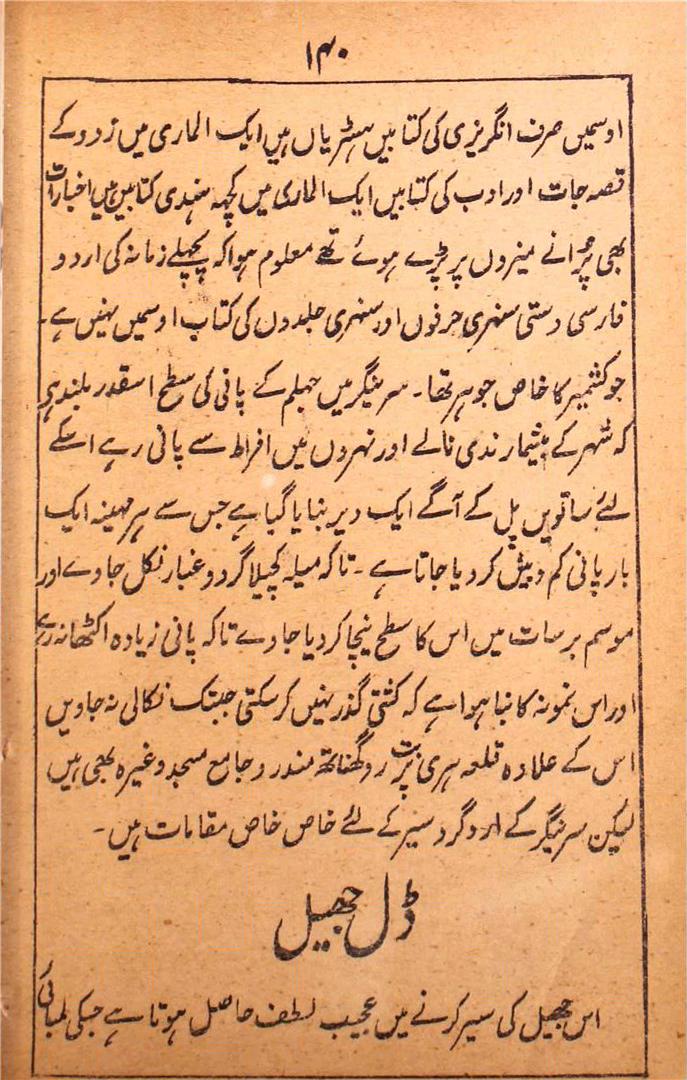 ۱۴۰
اوسمیں صرف انگریزی کی کتابیں ہسٹریاں ہیں ایک الماری میں زدو کے
قصہ جات اور ادب کی کتابیں ایک الماری میں کچہہ ہندی کتابیں ہیں اخبارات
بھی پُرانے میزوں پر پڑے ہوئے تھے معلوم ہوا کہ پچھلے زمانہ کی اردو
فارسی دستی سنہری حرفوں اور سنہری جلدوں کی کتاب اوسمیں نہیں ہے۔
جو کشمیر کا خاص جوہر تھا۔ سرینگر میں جہلم کے پانی کی سطح اسقدر بلند ہی
کہ شہر کے بیشمار ندی نالے اور نہروں میں افراط سے پانی رہے اسکے
لئے ساتویں پل کے آگے ایک ویر بنایا گیا ہے جس سے ہر مہینہ ایک
بار پانی کم و بیش کر دیا جاتا ہے۔ تاکہ میلہ کچیلا گرد و غبار نکل جاوے اور
موسم برسات میں اس کا سطح نیچا کر دیا جاوے تاکہ پانی زیادہ اکٹھا نہ رہے
اور اس نمونہ کا بنا ہوا ہے کہ کشتی گذر نہیں کر سکتی جبتک نکالی نہ جاویں
اس کے علاوہ قلعہ ہری پربت رو گھناتھ مندر و جامع مسجد وغیرہ بھی ہیں
لیکن سرینگر کے ارد گرد سیر کے لئے خاص خاص مقامات ہیں۔
ڈل جھیل
اس جھیل کی سیر کرنے میں عجیب لطف حاصل ہوتا ہے جسکی لمبائی